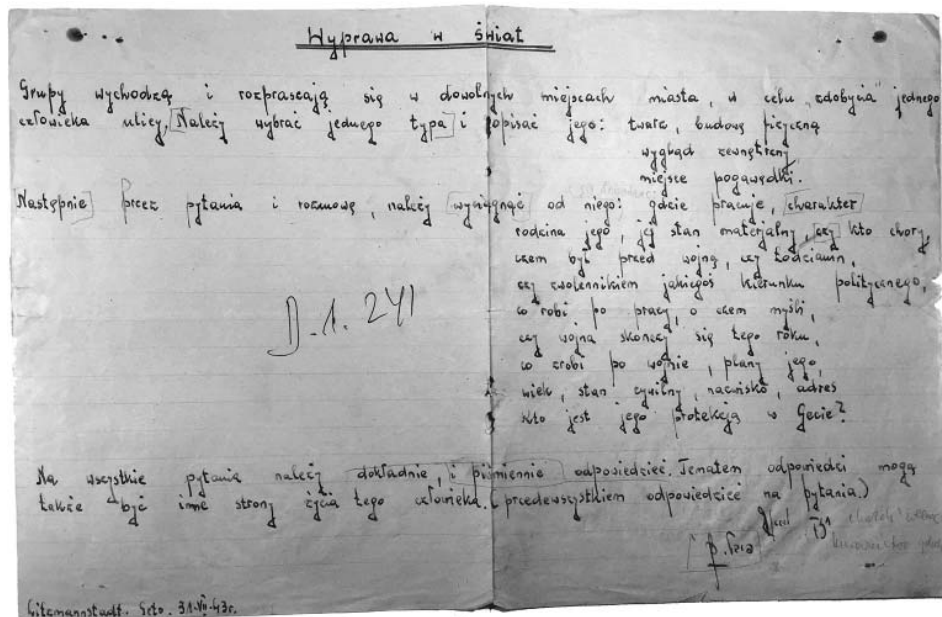 Wyprawa w świat
Grupy wychodzą i rozpraszają się w dowolnych miejscach miasta, w celu „zdobycia" jednego
człowieka ulicy. Należy wybrać jednego typa i opisać jego: twarz, budowę fizyczną
wygląd zewnętrzny,
miejsce pogawędki.
Następnie przez pytania i rozmowę, należy wyciągnąć od niego: gdzie pracuje, charakter
rodzina jego, jej stan materjalny, czy kto chory,
czem był przed wojną, czy Łodzianin,
czy zwolennikiem jakiegoś kierunku politycznego,
co robi po pracy, o czem myśli,
czy wojna skończy się tego roku,
co zrobi po wojnie, plany jego,
wiek, stan cywilny, nazwisko, adres
Kto jest jego protekcją w Gecie?
D.1.241
Na wszystkie pytania należy dokładnie, i piśmiennie odpowiedzieć. Tematem odpowiedzi mogą
także być inne strony życia tego człowieka. (przedewszystkiem odpowiedzieć na pytania.)
Litzmannstadt. Geto. 31.VII.43r.